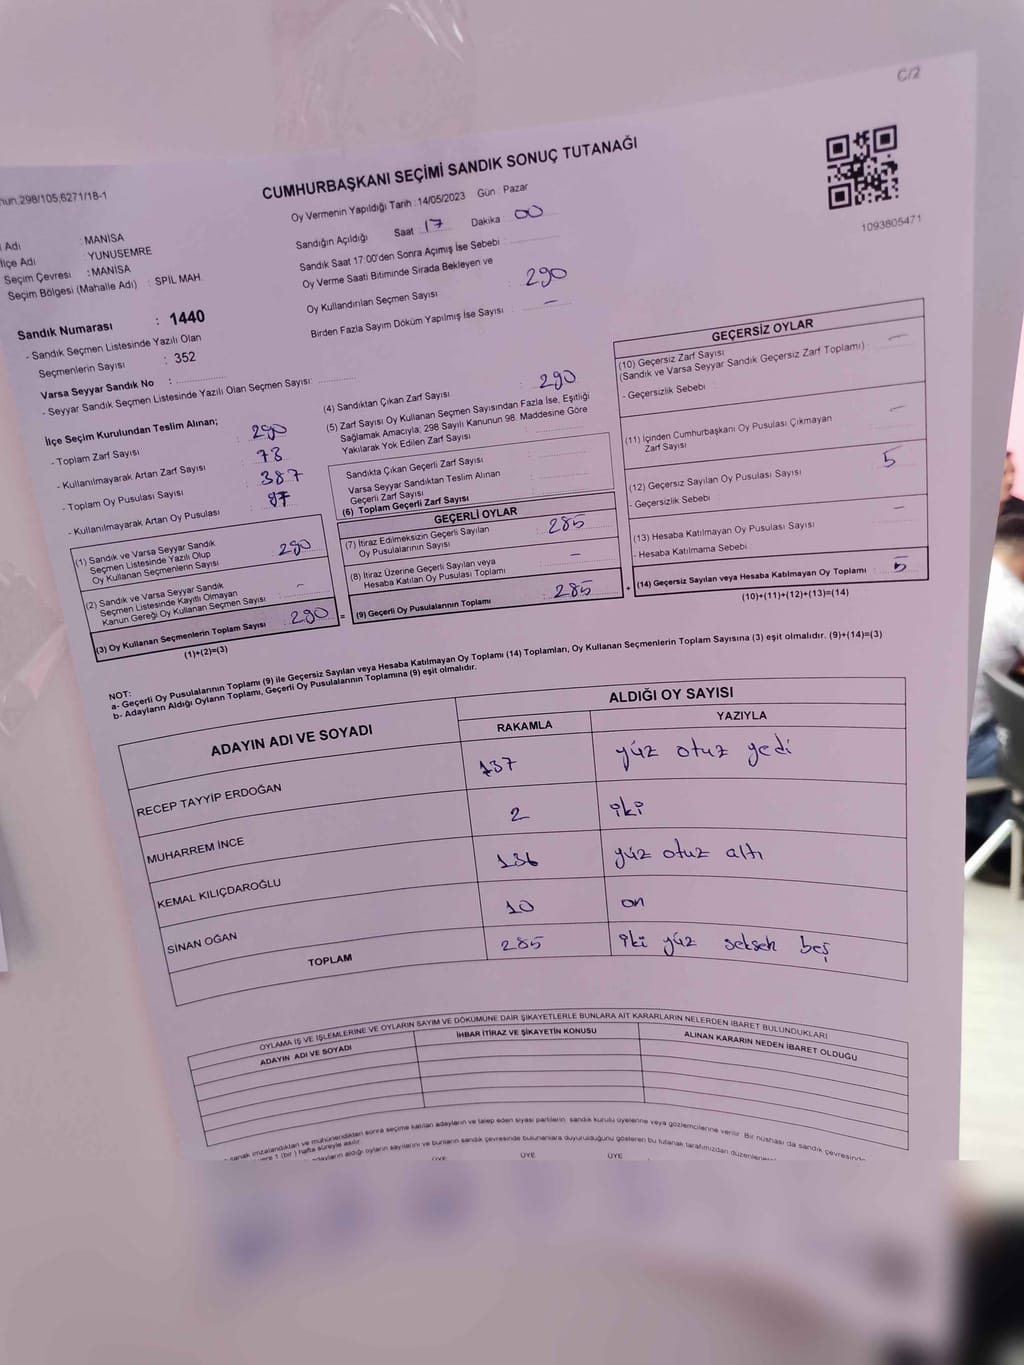 C/2
298/105;6271/18-1
CUMHURBAŞKANI SEÇİMİ SANDIK SONUÇ TUTANAĞI
Oy Vermenin Yapıldığı Tarih : 14/05/2023 Gün : Pazar
1093805471
Adı : MANİSA
İlçe Adı : YUNUSEMRE
Seçim Çevresi : MANİSA
Seçim Bölgesi (Mahalle Adı) : SPİL MAH.
Sandığın Açıldığı Saat 17 Dakika 00
Sandık Saat 17:00'den Sonra Açımış İse Sebebi :
Oy Verme Saati Bitiminde Sırada Bekleyen ve
Oy Kullandırılan Seçmen Sayısı : 290
Birden Fazla Sayım Döküm Yapılmış İse Sayısı : –
Sandık Numarası : 1440
- Sandık Seçmen Listesinde Yazılı Olan
Seçmenlerin Sayısı : 352
Varsa Seyyar Sandık No :
- Seyyar Sandık Seçmen Listesinde Yazılı Olan Seçmen Sayısı:
İlçe Seçim Kurulundan Teslim Alınan;
- Toplam Zarf Sayısı : 290
- Kullanılmayarak Artan Zarf Sayısı : 73
- Toplam Oy Pusulası Sayısı : 387
- Kullanılmayarak Artan Oy Pusulası : 97
(1) Sandık ve Varsa Seyyar Sandık
Seçmen Listesinde Yazılı Olup
Oy Kullanan Seçmenlerin Sayısı : 290
(2) Sandık ve Varsa Seyyar Sandık
Seçmen Listesinde Kayıtlı Olmayan
Kanun Gereği Oy Kullanan Seçmen Sayısı : –
(3) Oy Kullanan Seçmenlerin Toplam Sayısı : 290 =
(1)+(2)=(3)
(4) Sandıktan Çıkan Zarf Sayısı : 290
(5) Zarf Sayısı Oy Kullanan Seçmen Sayısından Fazla İse, Eşitliği
Sağlamak Amacıyla, 298 Sayılı Kanunun 98. Maddesine Göre
Yakılarak Yok Edilen Zarf Sayısı :
Sandıkta Çıkan Geçerli Zarf Sayısı :
Varsa Seyyar Sandıktan Teslim Alınan
Geçerli Zarf Sayısı :
(6) Toplam Geçerli Zarf Sayısı
GEÇERLİ OYLAR
(7) İtiraz Edilmeksizin Geçerli Sayılan
Oy Pusulalarının Sayısı : 285
(8) İtiraz Üzerine Geçerli Sayılan veya
Hesaba Katılan Oy Pusulası Toplamı : –
(9) Geçerli Oy Pusulalarının Toplamı : 285 +
GEÇERSİZ OYLAR
(10) Geçersiz Zarf Sayısı
(Sandık ve Varsa Seyyar Sandık Geçersiz Zarf Toplamı) : –
- Geçersizlik Sebebi :
(11) İçinden Cumhurbaşkanı Oy Pusulası Çıkmayan
Zarf Sayısı : –
(12) Geçersiz Sayılan Oy Pusulası Sayısı : 5
- Geçersizlik Sebebi :
(13) Hesaba Katılmayan Oy Pusulası Sayısı : –
- Hesaba Katılmama Sebebi :
(14) Geçersiz Sayılan veya Hesaba Katılmayan Oy Toplamı : 5
(10)+(11)+(12)+(13)=(14)
NOT:
a- Geçerli Oy Pusulalarının Toplamı (9) ile Geçersiz Sayılan veya Hesaba Katılmayan Oy Toplamı (14) Toplamları, Oy Kullanan Seçmenlerin Toplam Sayısına (3) eşit olmalıdır. (9)+(14)=(3)
b- Adayların Aldığı Oyların Toplamı, Geçerli Oy Pusulalarının Toplamına (9) eşit olmalıdır.
ADAYIN ADI VE SOYADI
ALDIĞI OY SAYISI
RAKAMLA YAZIYLA
RECEP TAYYİP ERDOĞAN 137 yüz otuz yedi
MUHARREM İNCE 2 iki
KEMAL KILIÇDAROĞLU 136 yüz otuz altı
SİNAN OĞAN 10 on
TOPLAM 285 iki yüz seksen beş
OYLAMA İŞ VE İŞLEMLERİNE VE OYLARIN SAYIM VE DÖKÜMÜNE DAİR ŞİKAYETLERLE BUNLARA AİT KARARLARIN NELERDEN İBARET BULUNDUKLARI
ADAYIN ADI VE SOYADI
İHBAR İTİRAZ VE ŞİKAYETİN KONUSU
ALINAN KARARIN NEDEN İBARET OLDUĞU
imzalandıktan ve mühürlendikten sonra seçime katılan adayların ve talep eden siyasi partilerin sandık kurulu üyelerine veya gözlemcilerine verilir. Bir nüshası da sandık çevresinde
1 (bir) hafta süreyle asılır.
adayların aldığı oyların sayılarını ve bunların sandık çevresinde bulunanlara duyurulduğunu gösteren bu tutanak tarafımızdan
ÜYE ÜYE ÜYE